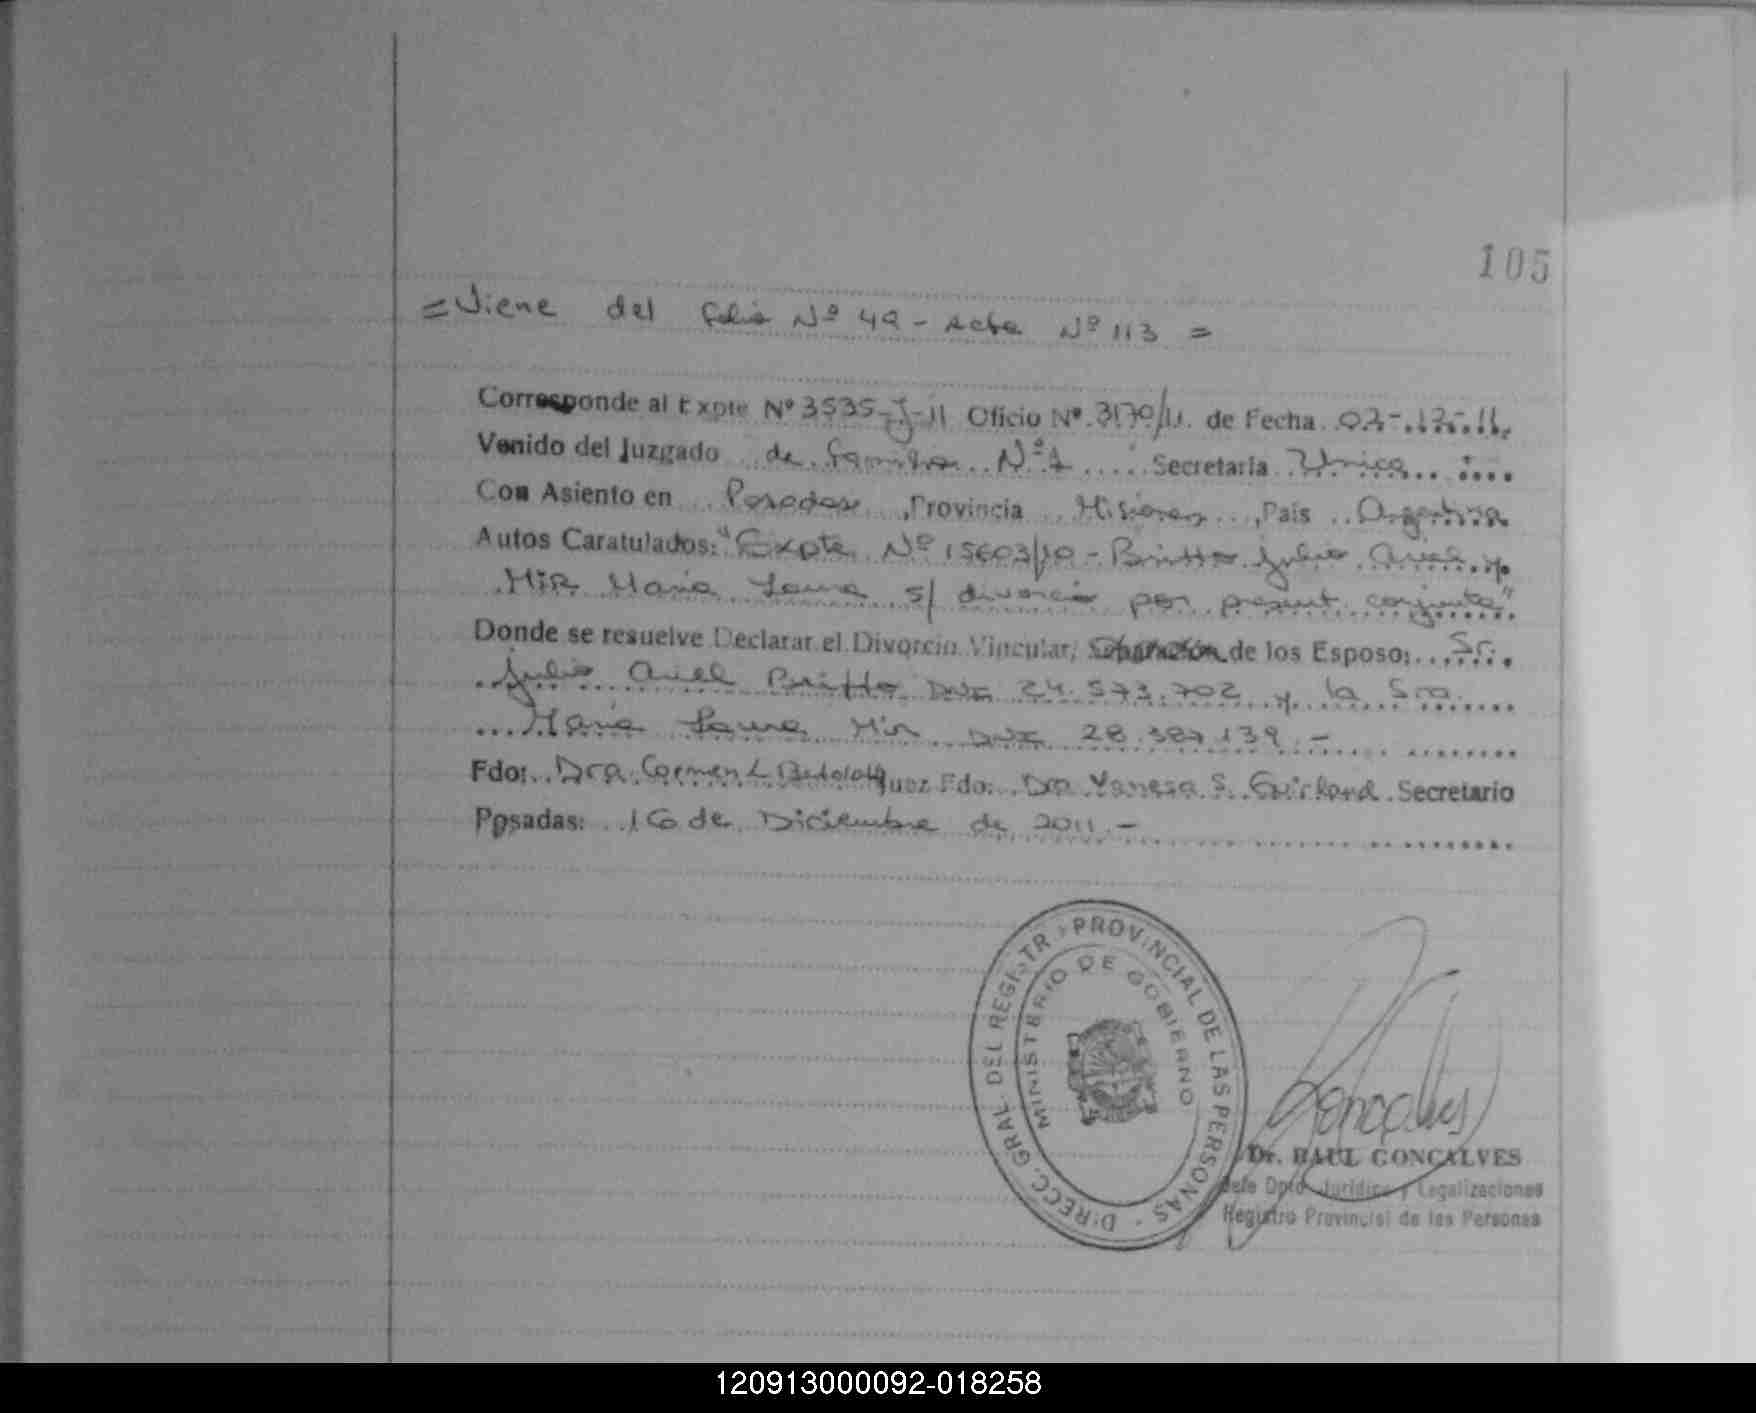 105
= Viene del folio Nº 49 - Acta Nº 113 =
Corresponde al Expte Nº 3535-J-11 Oficio Nº 3170/11 de Fecha 02-12-11
Venido del Juzgado de Familia Nº 1 Secretaría Unica
Con Asiento en Posadas, Provincia Misiones, País Argentina
Autos Caratulados: "Expte Nº 15603/10 - Britto Julio Ariel y
Mir María Laura s/ divorcio por present. conjunta"
Donde se resuelve Declarar el Divorcio Vincular, Separación de los Esposo: Sr.
Julio Ariel Britto DNI 24.573.702 y la Sra.
María Laura Mir DNI 28.387.139.-
Fdo: Dra. Carmen L Juez Fdo: Dra Vanesa S. Secretario
Posadas: 16 de Diciembre de 2011.-
DIRECC. GRAL. DEL REGISTRO PROVINCIAL DE LAS PERSONAS
MINISTERIO DE GOBIERNO
Goncalves
Dr. RAUL GONCALVES
Jefe Dpto. Jurídico y Legalizaciones
Registro Provincial de las Personas
120913000092-018258